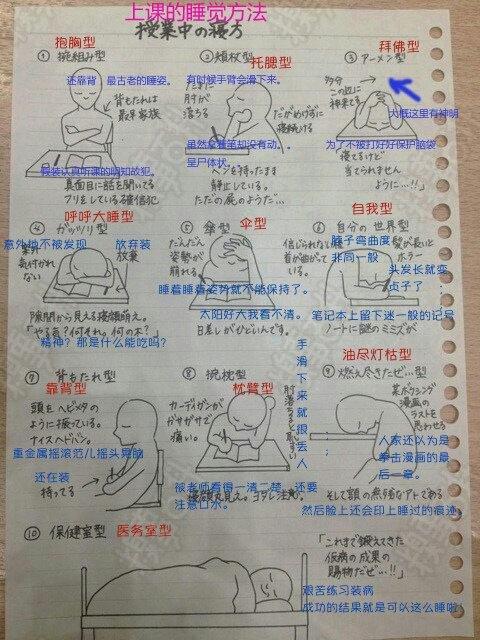 上课的睡觉方法
授業中の寝方
抱胸型
① 腕組み型
还靠背 最古老的睡姿。
背もたれは
最早家族
假装认真听课的明知故犯。
真面目に話を聞いてる
フリをしている確信犯
托腮型
② 頬杖型
有时候手臂会滑下来。
たまに
肘が
落ちる
だがめげずに
寝続ける
虽然拿着笔却没有动。。
呈尸体状。
ペンを持ったまま
静止している。
ただの屍のようだ…
拜佛型
③ アーメン型
多分
この辺に
神来てる
大概这里有神明
为了不被打好好保护脑袋
寝てるけど
当てられません
ように…!!
呼呼大睡型
④ ガッツリ型
意外地不被发现
気付かれ
ない
放弃装
放棄
隙間から見える寝顔萌え。
「やる気？何それ。何の木？」
精神？那是什么能吃吗？
伞型
⑤ 傘型
だんだん
姿勢が
崩れる
睡着睡着姿势就不能保持了。
太阳好大我看不清。
日差しがひどいんです。
自我型
⑥ 自分の世界型
信じられない
首が曲がって
いる。
脖子弯曲度
非同一般
髪が長いと
ホラー
头发长就变
贞子了；
笔记本上留下迷一般的记号
ノートに謎のミミズが
靠背型
⑦ 背もたれ型
頭をヘビメタの
ように振っている。
ナイスヘドバン。
重金属摇滚范儿摇头晃脑
还在装
持ってる
枕臂型
⑧ 腕枕型
カーディガンが
ガサガサで
痛い。
手滑下来就很丢人
被老师看得一清二楚。还要
注意口水。
油尽灯枯型
⑨ 燃え尽きたぜ…型
某ボクシング
漫画の
ラストを
思わせる
人家还以为是
拳击漫画的最
后一章。
そして額の無残なアトである
然后脸上还会印上睡过的痕迹
⑩ 保健室型
医务室型
「これまで鍛えてきた
仮病の成果の
賜物だぜ…!!」
艰苦练习装病
成功的结果就是可以这么睡啦！